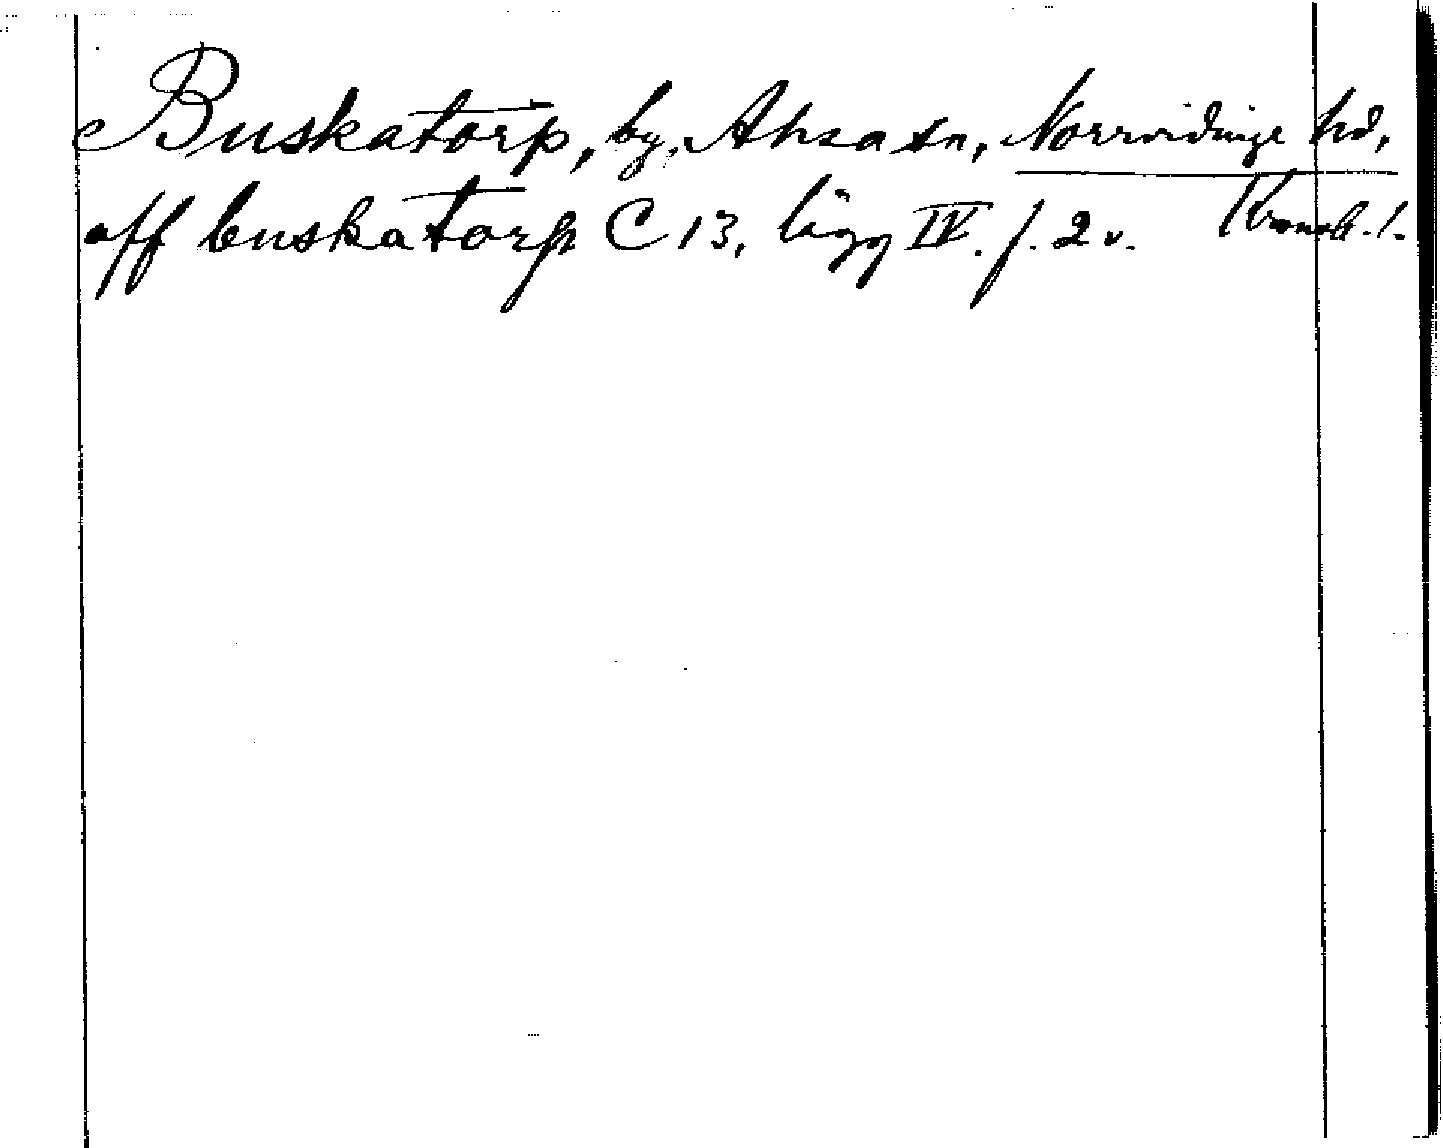 Buskatorp, by, Ahsa sn, Norrvidinge hd,
aff buskatorp C 13, lägg IV. f. 2 v. Kronob. l.